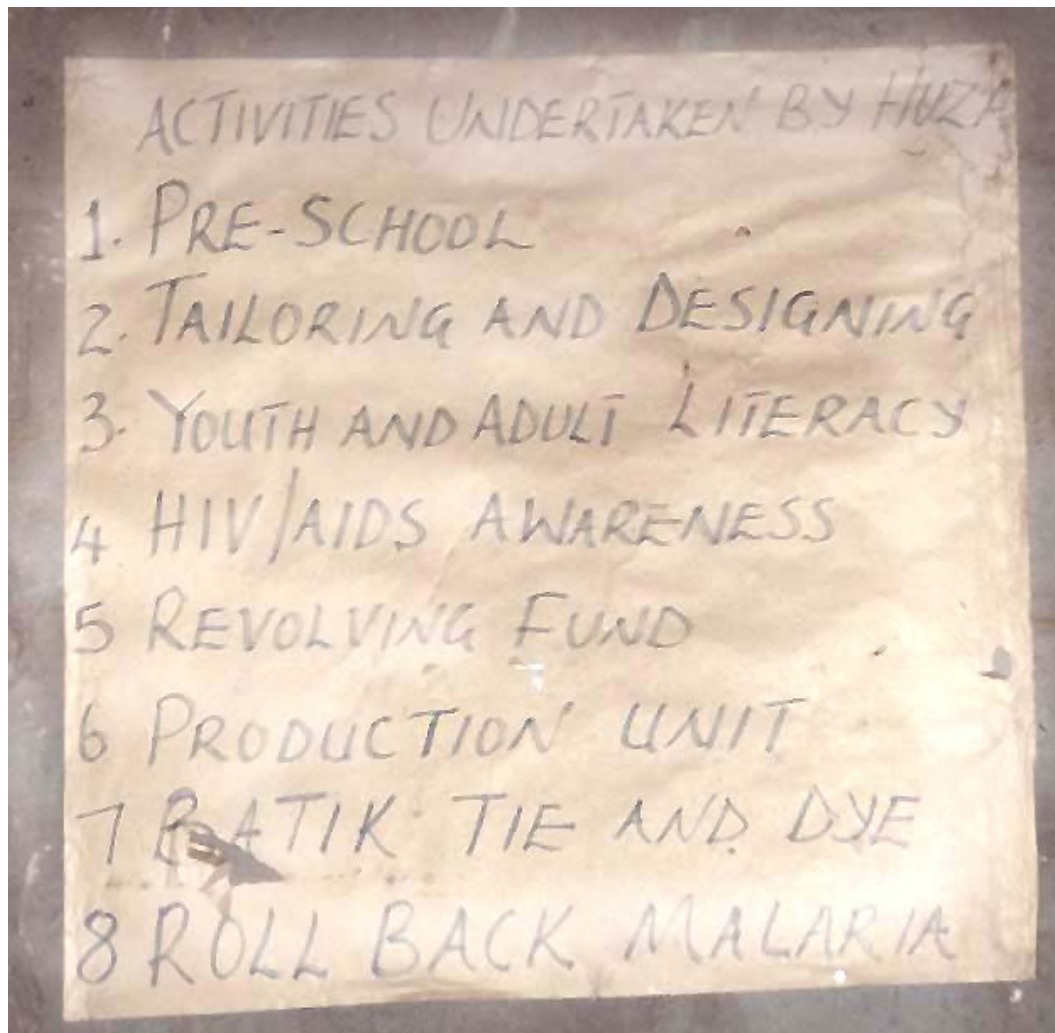 ACTIVITIES UNDERTAKEN BY HUZA
1. PRE-SCHOOL
2. TAILORING AND DESIGNING
3. YOUTH AND ADULT LITERACY
4 HIV/AIDS AWARENESS
5 REVOLVING FUND
6 PRODUCTION UNIT
7 BATIK TIE AND DYE
8 ROLL BACK MALARIA